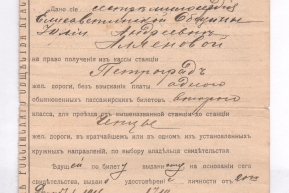 Дано сіе сестрѣ милосердія
Елисаветинской Общины
Юліи Андреевнѣ
Аляновой
на право полученія изъ кассы станціи
Петроградъ
жел. дороги, безъ взысканія платы одного
обыкновенныхъ пассажирскихъ билетовъ второго
класса, для проѣзда отъ вышеназванной станціи до станціи
жел. дороги, въ кратчайшемъ или въ одномъ изъ установленныхъ
кружныхъ направленій, по выбору владѣльца свидѣтельства.
Ѣдущей по билету выданному на основаніи сего
свидѣтельства, выдано удостовѣреніе личности отъ
РОССІЙСКАГО ОБЩЕСТВА КРАСН